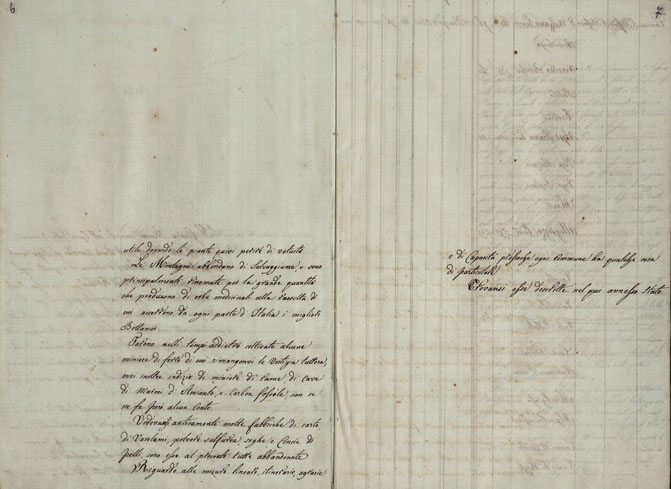 6
utile dovendo le piante quivi perire di vetustà
Le Montagne abbondano di Selvaggiume, e sono
principalmente rinomate per la grande quantità
che producono di erbe medicinali alla raccolta di
cui accorrono da ogni parte d'Italia i migliori
Bottanici
Furono nelli tempi addietro coltivate alcune
miniere di ferro di cui rimangonvi le vestigia tuttora,
evvi inoltre indizio di miniere di rame di cave
di Marmi, d'Amianto, e Carbon fossile, non se
ne fa però alcun conto.
Vedevansi anticamente molte fabbriche di carta,
di Vasellami, polvere sulfurea, seghe e Concie di
pelli, sono esse al presente tutte abbandonate
Riguardo alle misure lineari, itinerarie, agrarie
7
e di Capacità pressoché ogni Commune ha qualche cosa
di particolare
Trovansi esse descritte nel qui annesso Stato